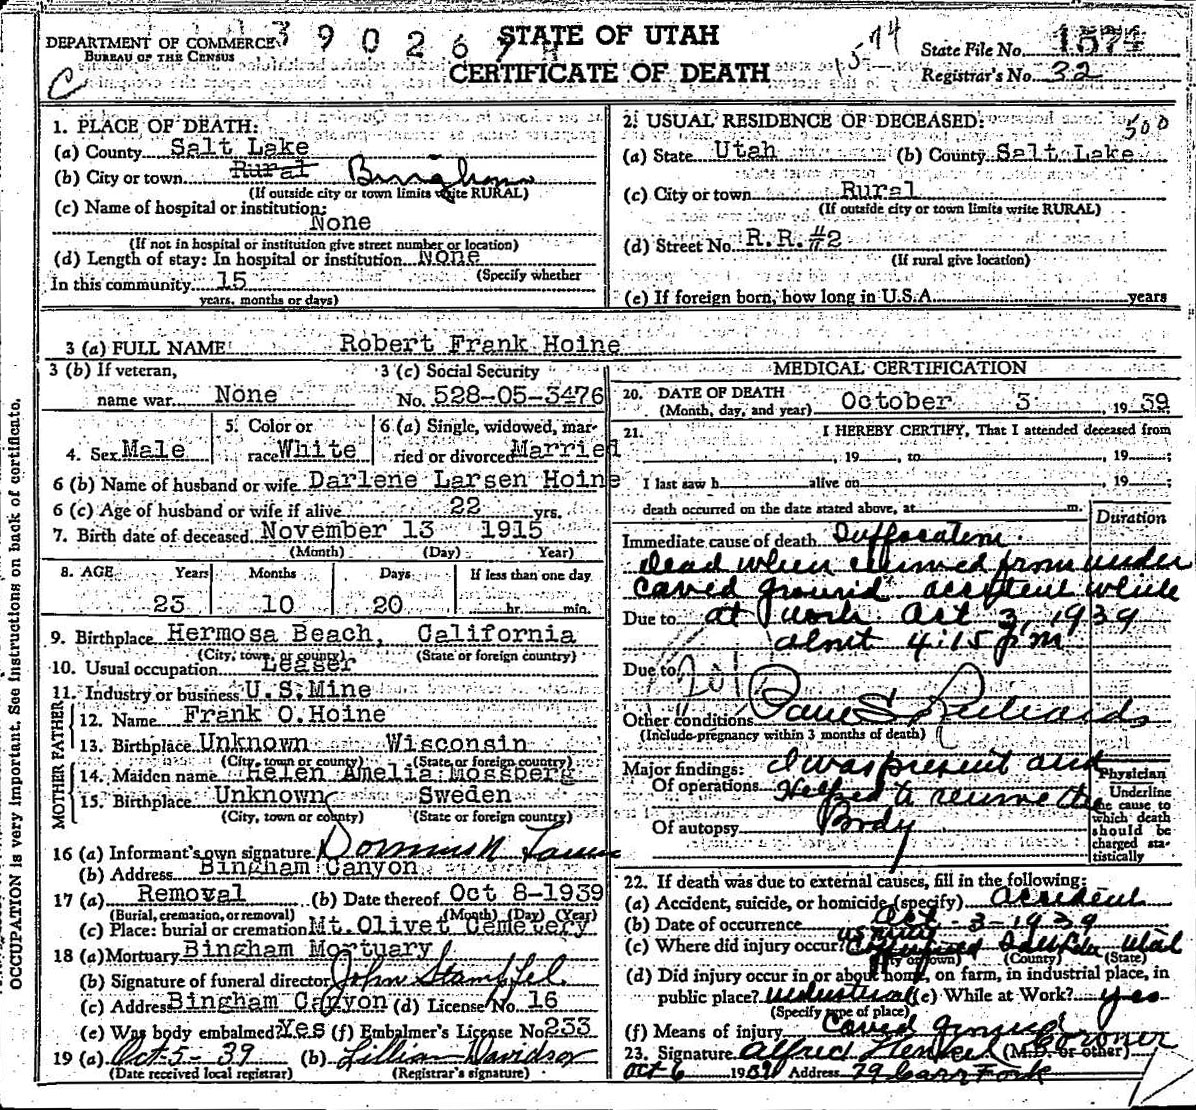 39026
STATE OF UTAH
CERTIFICATE OF DEATH
DEPARTMENT OF COMMERCE
BUREAU OF THE CENSUS
C
1574
State File No. 1574
Registrar's No. 32
1. PLACE OF DEATH:
(a) County Salt Lake
(b) City or town Rural Bingham
(If outside city or town limits write RURAL)
(c) Name of hospital or institution:
None
(If not in hospital or institution give street number or location)
(d) Length of stay: In hospital or institution None
(Specify whether
In this community 15
years, months or days)
2. USUAL RESIDENCE OF DECEASED:
500
(a) State Utah (b) County Salt Lake
(c) City or town Rural
(If outside city or town limits write RURAL)
(d) Street No. R.R. #2
(If rural give location)
(e) If foreign born, how long in U.S.A. years
3 (a) FULL NAME Robert Frank Hoine
3 (b) If veteran,
name war None
3 (c) Social Security
No. 528-05-3476
4. Sex Male
5. Color or
race White
6 (a) Single, widowed, mar-
ried or divorced Married
6 (b) Name of husband or wife Darlene Larsen Hoine
6 (c) Age of husband or wife if alive 22 yrs.
7. Birth date of deceased November 13 1915
(Month) (Day) Year)
8. AGE Years Months Days If less than one day
23 10 20 hr. min.
9. Birthplace Hermosa Beach, California
(City, town, or county) (State or foreign country)
10. Usual occupation Leaser
11. Industry or business U.S. Mine
FATHER
12. Name Frank O. Hoine
13. Birthplace Unknown Wisconsin
(City, town or county) (State or foreign country)
MOTHER
14. Maiden name Helen Amelia Mossberg
15. Birthplace Unknown Sweden
(City, town or county) (State or foreign country)
16 (a) Informant's own signature
(b) Address Bingham Canyon
17 (a) Removal (b) Date thereof Oct 8-1939
(Burial, cremation, or removal) (Month) (Day) (Year)
(c) Place: burial or cremation Mt. Olivet Cemetery
18 (a) Mortuary Bingham Mortuary
(b) Signature of funeral director John Stampfel
(c) Address Bingham Canyon (d) License No. 16
(e) Was body embalmed? Yes (f) Embalmer's License No. 233
19 (a) Oct-5-39 (b) Lillian Davidson
(Date received local registrar) (Registrar's signature)
MEDICAL CERTIFICATION
20. DATE OF DEATH
(Month, day, and year) October 3, 1939
21. I HEREBY CERTIFY, That I attended deceased from
, 19 , to , 19 ;
I last saw h alive on , 19 ;
death occurred on the date stated above, at m.
Duration
Immediate cause of death Suffocation.
dead when removed from under
caved ground accident while
Due to at work Oct 3, 1939
about 4:15 pm
Due to 201
Other conditions Paul S Richards
(Include pregnancy within 3 months of death)
Major findings: I was present and
Of operations Helped to recume the
Of autopsy Body
Physician
Underline
the cause to
which death
should be
charged sta-
tistically
22. If death was due to external causes, fill in the following:
(a) Accident, suicide, or homicide (specify) accident
(b) Date of occurrence Oct-3-1939
(c) Where did injury occur? Utah
(City or town) (County) (State)
(d) Did injury occur in or about home, on farm, in industrial place, in
public place? industrial (e) While at Work? yes
(Specify type of place)
(f) Means of injury caved ground
23. Signature Alfred Coroner (M.D. or other)
Oct 6 1939 Address 79 Carr Fork
OCCUPATION is very important. See instructions on back of certificate.